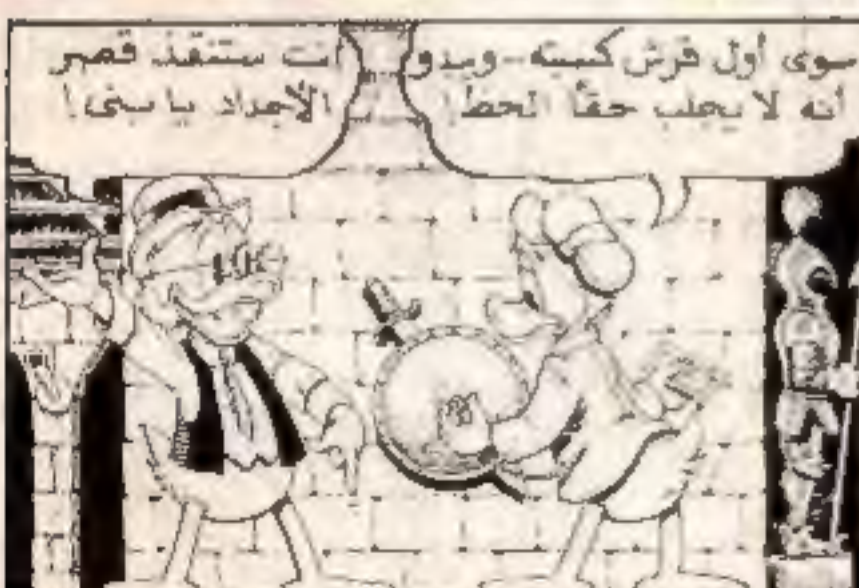 سوى أول قرش كسبته - ويبدو
أنه لا يجلب حقاً الحظ!
أنت ستنقذ قصر
الأجداد يا بني!